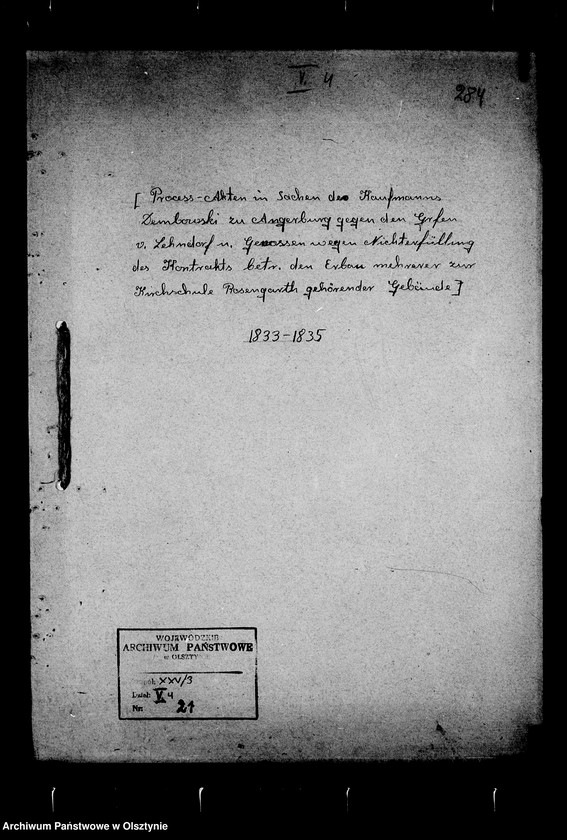 V. 4
284
[ Process-Akten in Sachen des Kaufmanns
Dembowski zu Angerburg gegen den Grfen
v. Lehndorf u. Genossen wegen Nichterfüllung
des Kontrakts betr. den Erbau mehrerer zur
Kirchschule Rosengarth gehörender Gebäude ]
1833-1835
WOJEWÓDZKIE
ARCHIWUM PAŃSTWOWE
w OLSZTYNIE
XXV/3
Dział: V 4
Nr: 21
Archiwum Państwowe w Olsztynie